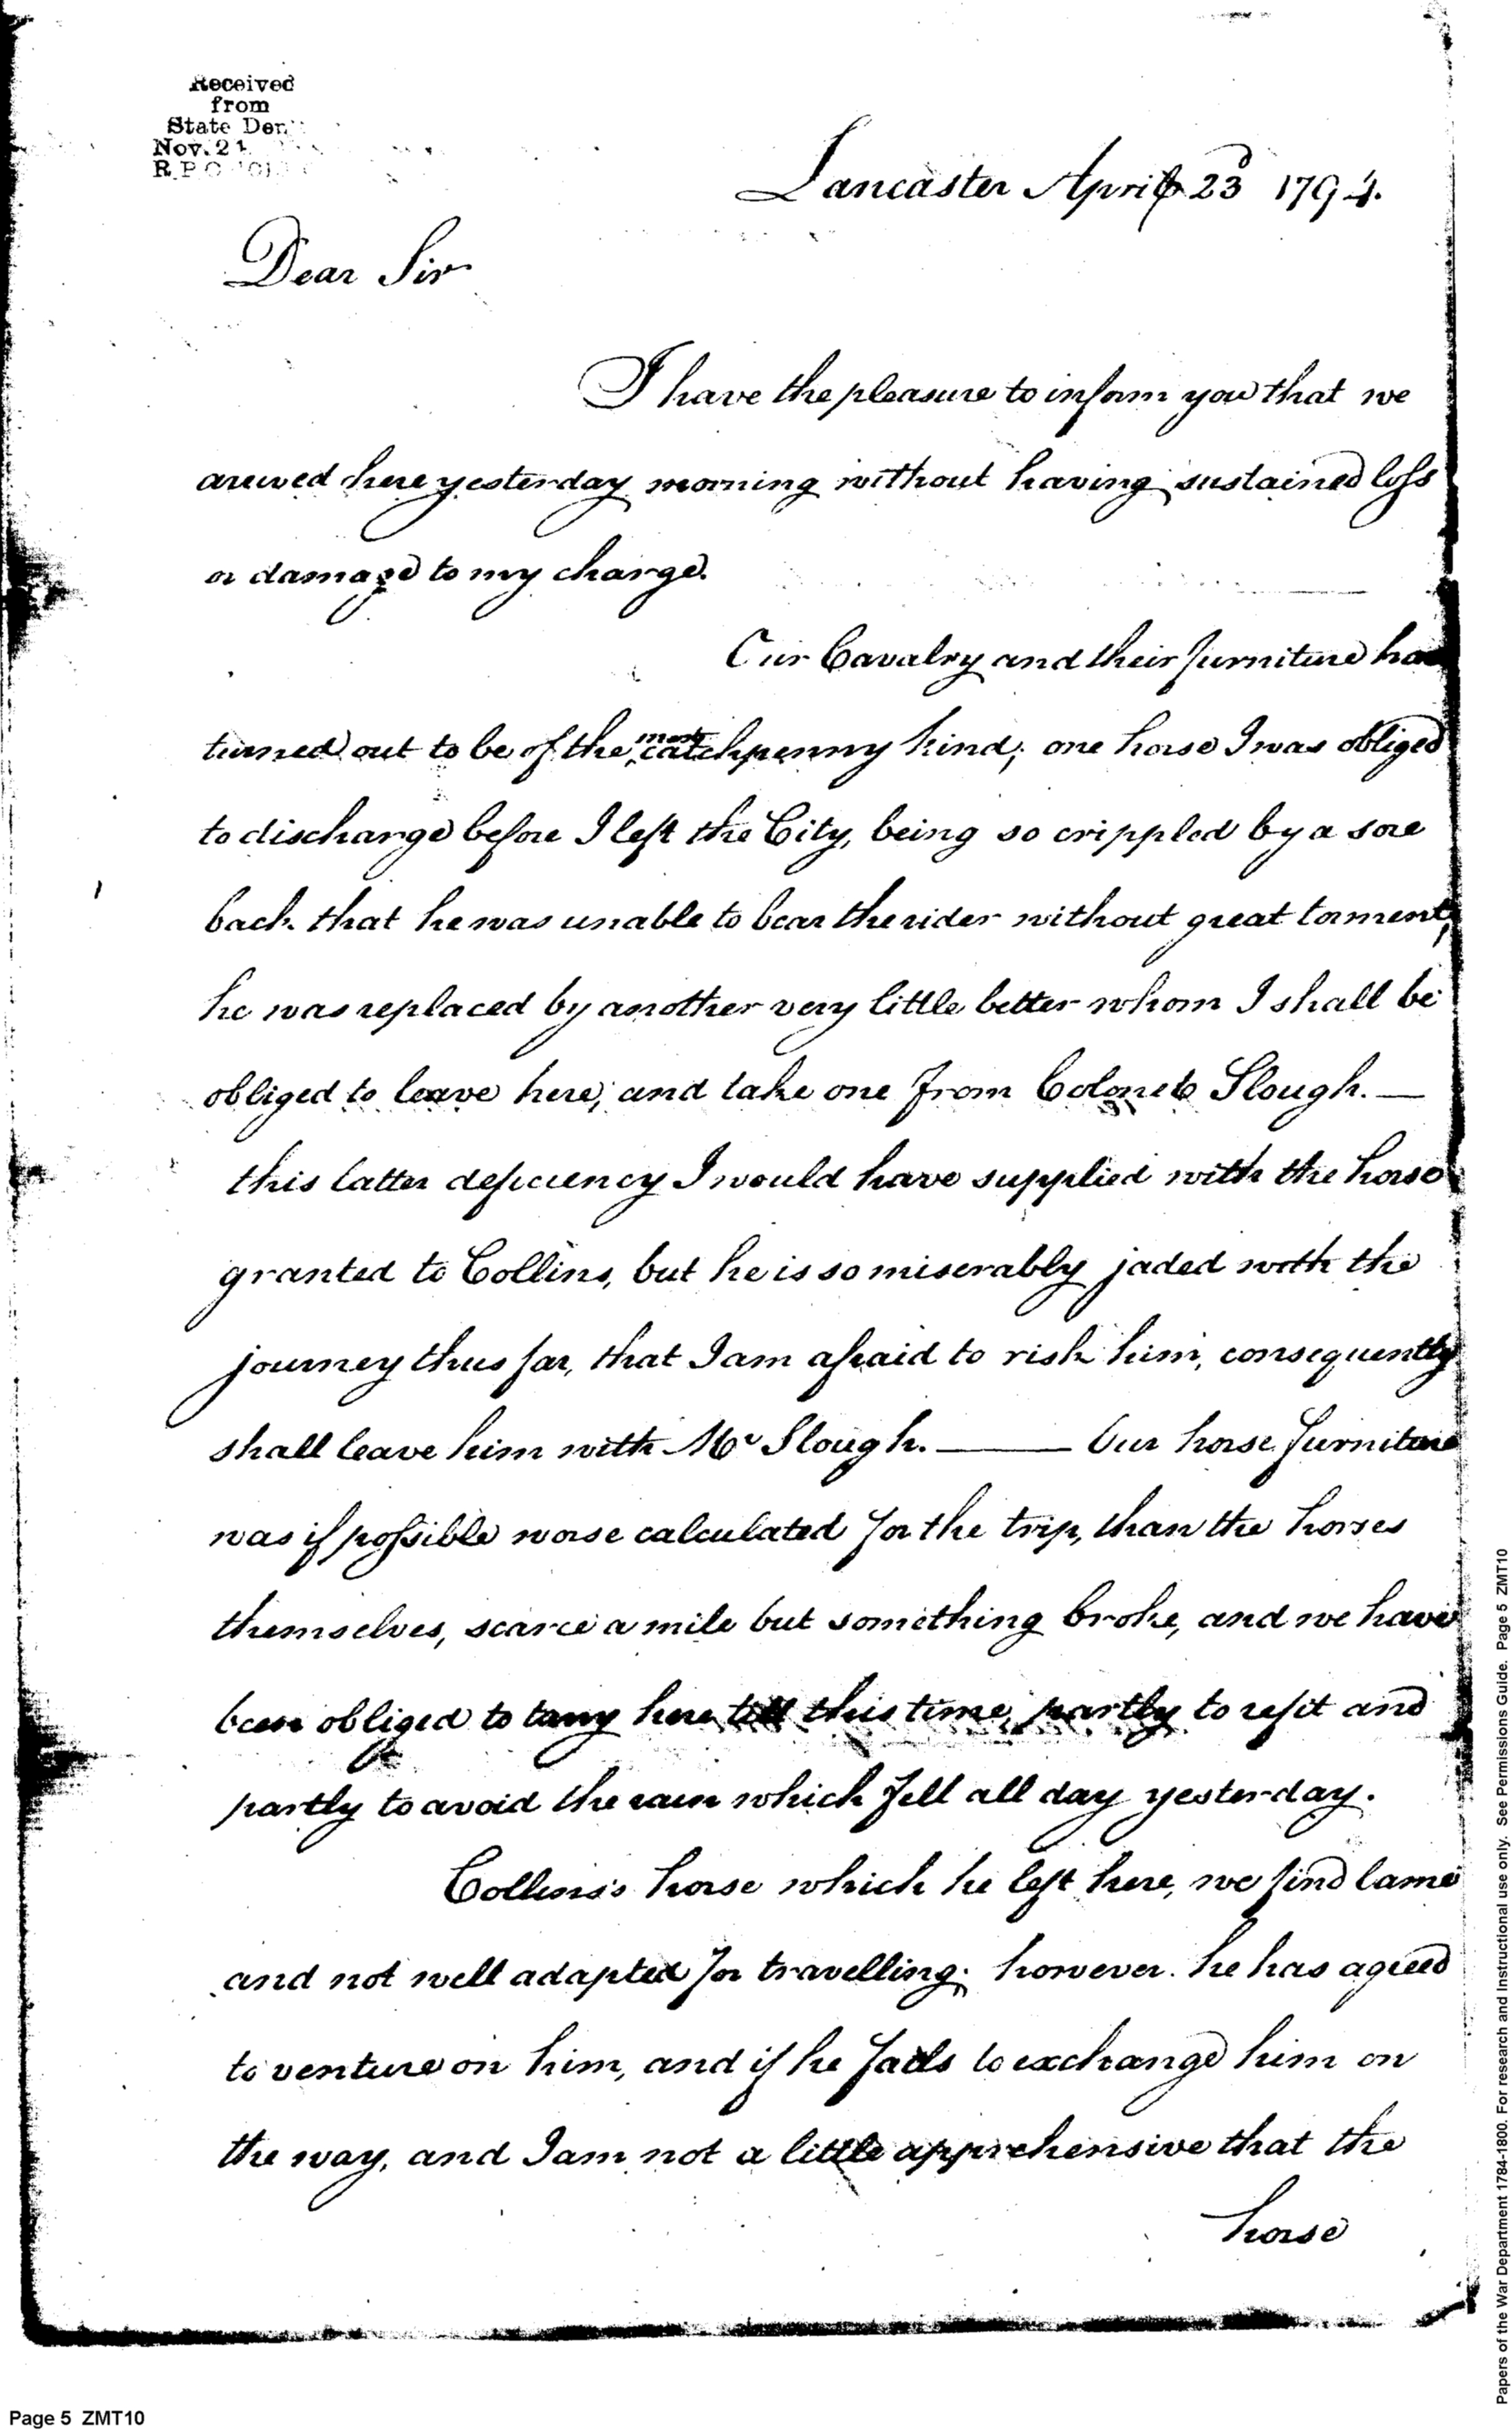 Received
from
State Dep
Nov. 21
Lancaster April 23d 1794.
Dear Sir
I have the pleasure to inform you that we
arrived here yesterday morning without having sustained loss
or damage to my charge.
Our Cavalry and their furniture has
turned out to be of the most catchpenny kind; one horse I was obliged
to discharge before I left the City, being so crippled by a sore
back that he was unable to bear the rider without great torment,
he was replaced by another very little better whom I shall be
obliged to leave here, and take one from Colonel Slough. —
this latter deficiency I would have supplied with the horse
granted to Collins, but he is so miserably jaded with the
journey thus far, that I am afraid to risk him, consequently
shall leave him with Mr Slough. — Our horse furniture
was if possible worse calculated for the trip, than the horses
themselves, scarce a mile but something broke, and we have
been obliged to tarry here till this time, partly to refit and
partly to avoid the rain which fell all day yesterday.
Collins's horse which he left here, we find lame
and not well adapted for travelling; however he has agreed
to venture on him, and if he fails to exchange him on
the way, and I am not a little apprehensive that the
horse
Page 5 ZMT10
Papers of the War Department 1784-1800. For research and Instructional use only. See Permissions Guide. Page 5 ZMT10